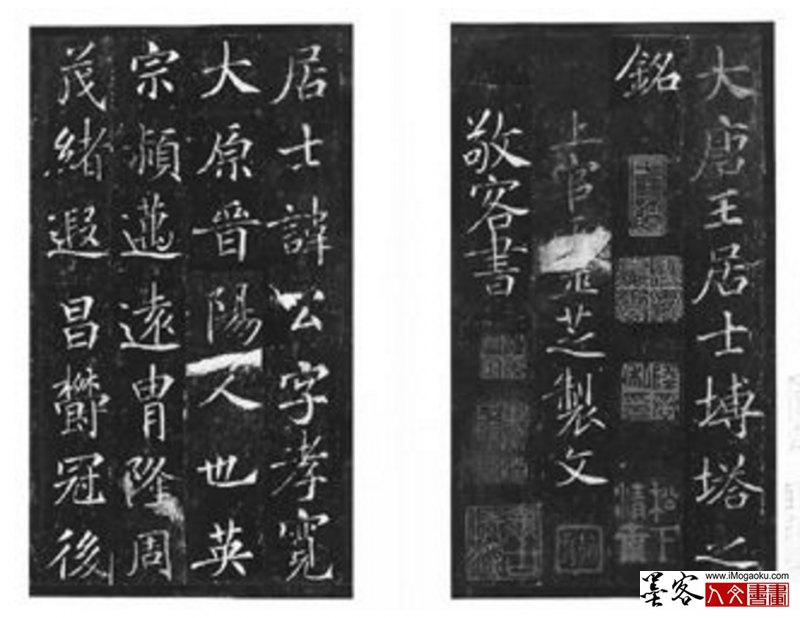 大唐王居士塼塔之
銘
上官靈芝製文
敬客書
居士諱公字孝寬
大原晉陽人也英
宗潁邁遠冑隆周
茂緒遐昌鬱冠後
松下清齋
墨客
www.iMogaoku.com
人文書畫